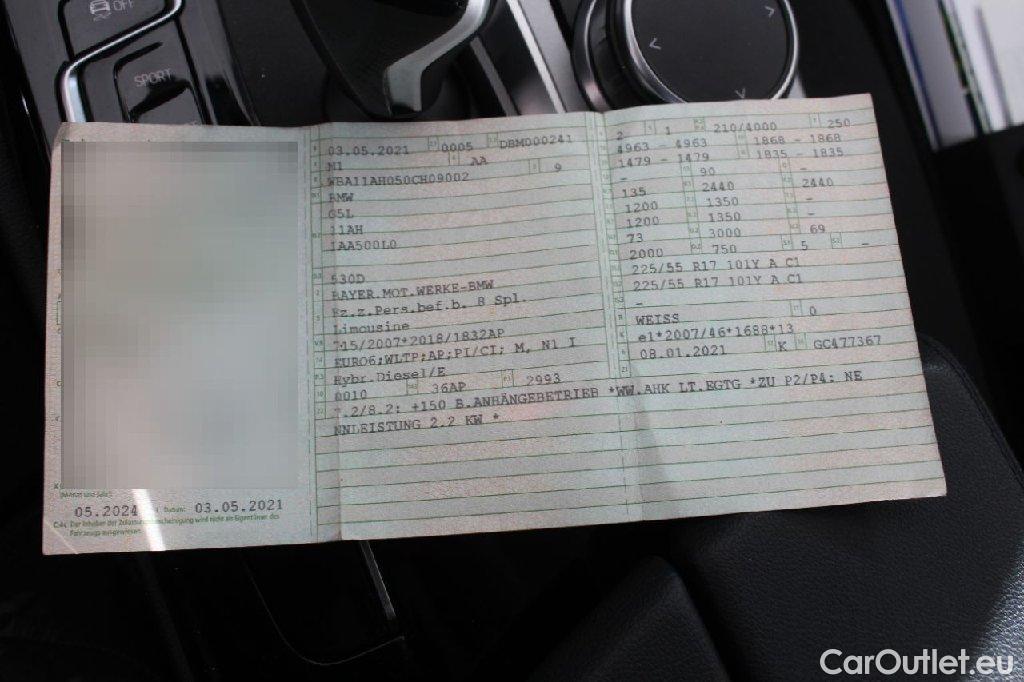 OFF
SPORT
03.05.2021 0005 DBMD00241
M1 AA 9
WBA11AH050CH09002
BMW
G5L
11AH
1AA500L0
530D
BAYER.MOT.WERKE-BMW
Fz.z.Pers.bef.b. 8 Spl.
Limousine
715/2007*2018/1832AP
EURO6;WLTP;AP;PI/CI; M, N1 I
Hybr.Diesel/E
0010 36AP 2993
7.2/8.2: +150 B.ANHÄNGEBETRIEB *WW.AHK LT.EGTG *ZU P2/P4: NE
NNLEISTUNG 2.2 KW *
2 1 210/4000 250
4963 - 4963 1868 - 1868
1479 - 1479 1835 - 1835
- 90 -
135 2440 2440
1200 1350 -
1200 1350 -
73 3000 69
2000 750 5 -
225/55 R17 101Y A C1
225/55 R17 101Y A C1
-
WEISS 0
e1*2007/46*1688*13
08.01.2021 K GC477367
05.2024 Datum: 03.05.2021
C4c Der Inhaber der Zulassungsbescheinigung wird nicht als Eigentümer des
Fahrzeugs ausgewiesen.
CarOutlet.eu